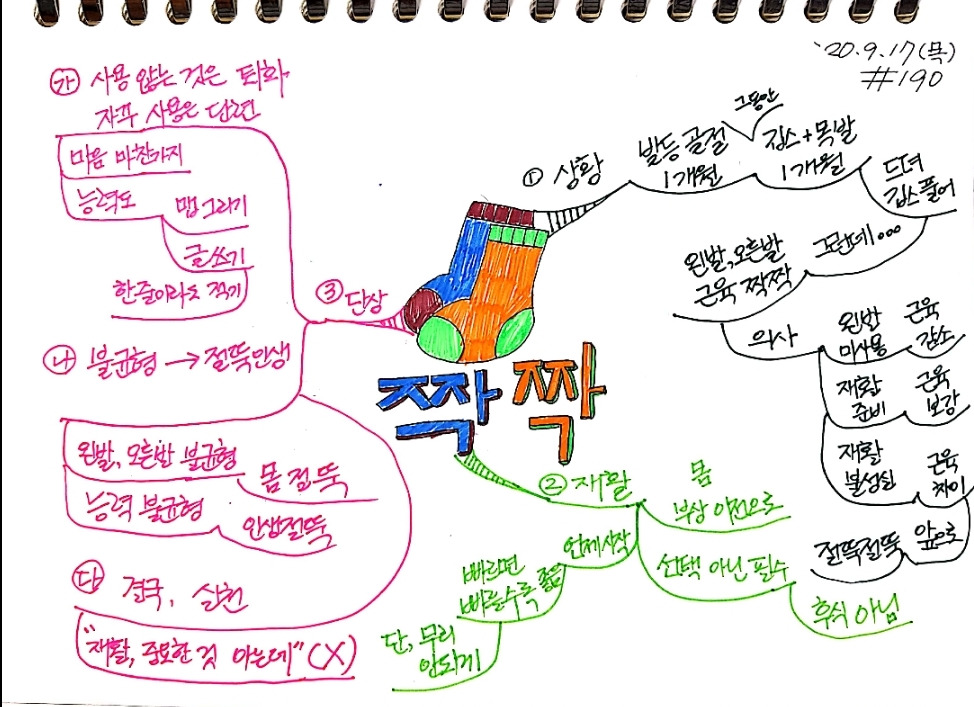 '20.9.17(목)
#190
짝짝
① 상황
발등 골절
1개월
그동안
깁스+목발
1개월
드뎌
깁스 풀어
그런데...
왼발, 오른발
근육 짝짝
의사
왼발
미사용
근육
감소
재활
준비
근육
보강
재활
불성실
근육
차이
절뚝절뚝
앞으로
② 재활
몸
부상 이전으로
선택 아닌 필수
후식 아님
언제 시작
빠르면
빠를수록 좋음
단, 무리
안되게
③ 단상
㉮ 사용 않는 것은 퇴화
자꾸 사용은 단련
마음 마찬가지
능력도
맵그리기
글쓰기
한줄이라도 적기
㉯ 불균형 → 절뚝인생
왼발, 오른발 불균형
몸 절뚝
능력 불균형
인생절뚝
㉰ 결국, 실천
"재활, 중요한 것 아는데" (X)